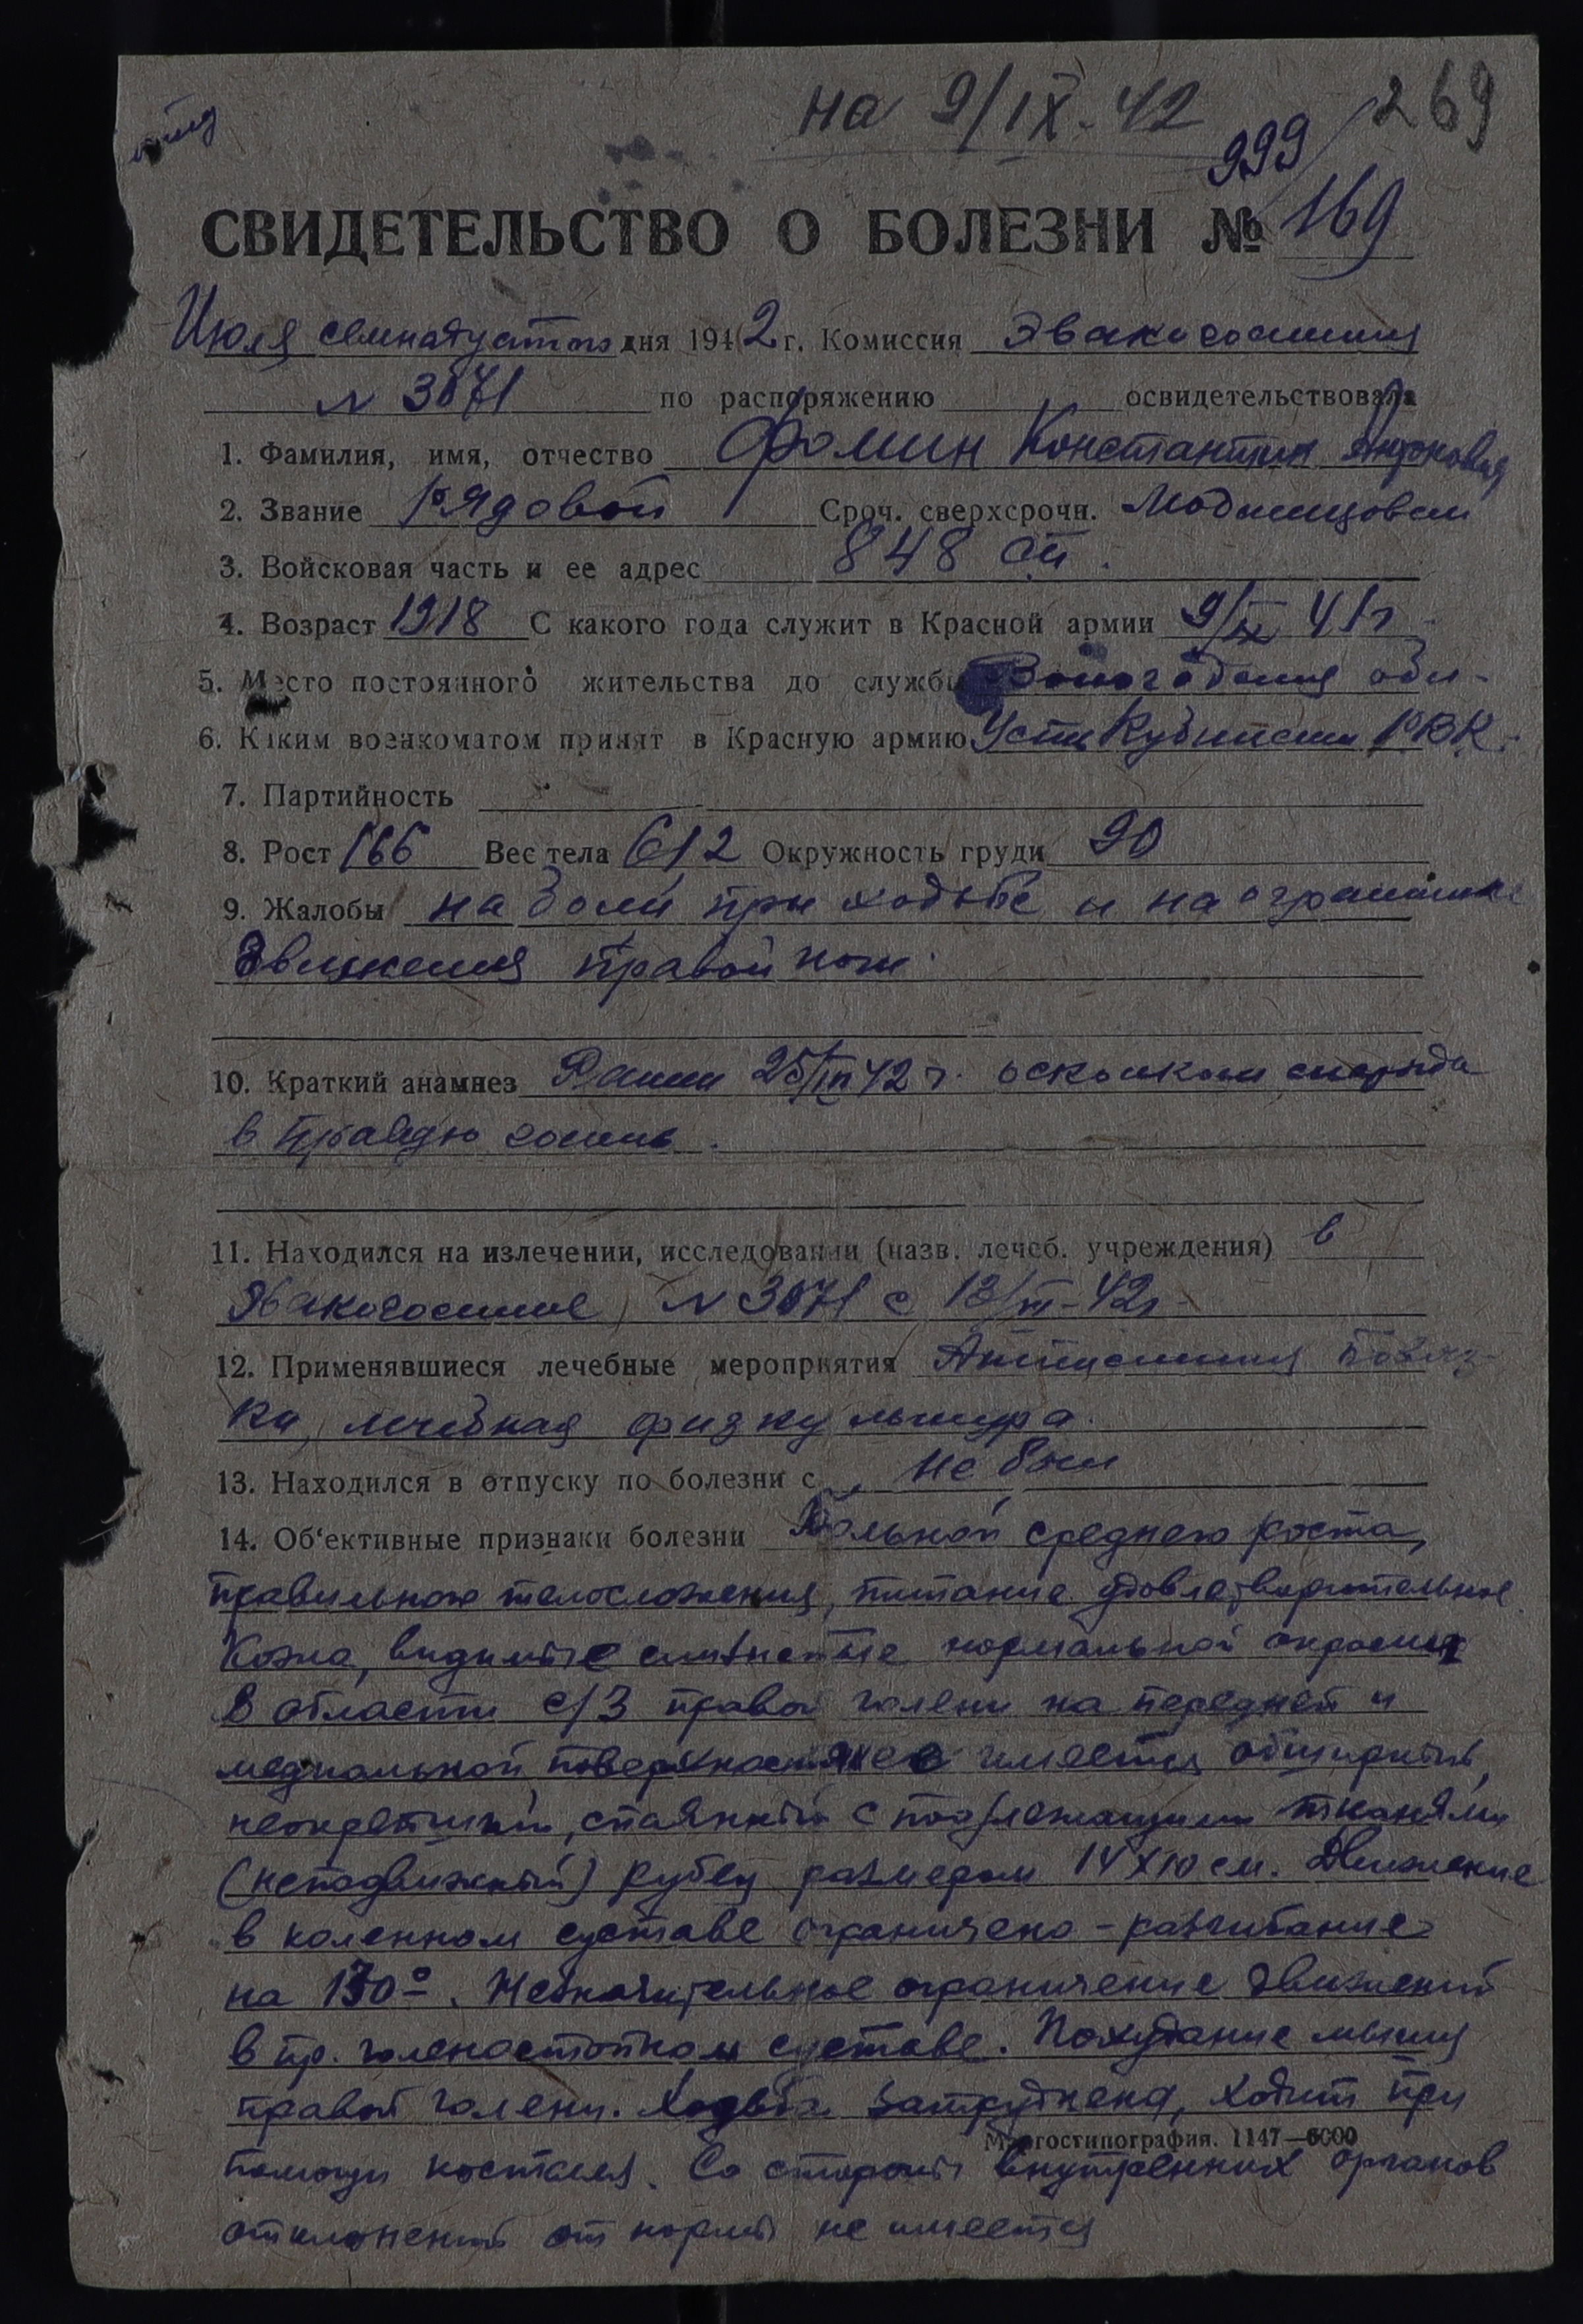 на 9/IX-42 269
999/
СВИДЕТЕЛЬСТВО О БОЛЕЗНИ № 169
Июля семнадцатого дня 1942 г. Комиссия Эвакогоспиталя
N 3071 по распоряжению освидетельствовала
1. Фамилия, имя, отчество Фомин Константин
2. Звание Рядовой Сроч. сверхсрочн.
3. Войсковая часть и ее адрес 848 сп.
4. Возраст 1918 С какого года служит в Красной армии 9/IX 41 г
5. Место постоянного жительства до службы Вологодская обл.
6. Каким военкоматом принят в Красную армию Усть Кубинским РВК.
7. Партийность
8. Рост 166 Вес тела 612 Окружность груди 90
9. Жалобы на боли при ходьбе и на ограничение
движения правой ноги.
10. Краткий анамнез Ранен 25/III 42 г. осколком снаряда
в правую голень.
11. Находился на излечении, исследовании (назв. лечеб. учреждения) в
Эвакогоспитале N 3071 с
12. Применявшиеся лечебные мероприятия повяз-
ки, лечебная физкультура.
13. Находился в отпуску по болезни с не был
14. Об‘ективные признаки болезни Больной среднего роста,
правильного телосложения, питание удовлетворительное.
Кожа, видимые слизистые нормальной окраски
В области с/3 правой голени на передней и
медиальной поверхности ее имеется обширный,
неокрепший, спаянный с подлежащими тканями
(неподвижный) рубец размером 14 х 10 см. Движение
в коленном суставе ограничено - разгибание
на . Незначительное ограничение движений
в пр. голеностопном суставе. Похудание мышц
правой голени. Ходьба затруднена, ходит при
Мосгостипография. 1147—6000
помощи костыля. Со стороны внутренних органов
отклонений от нормы не имеется